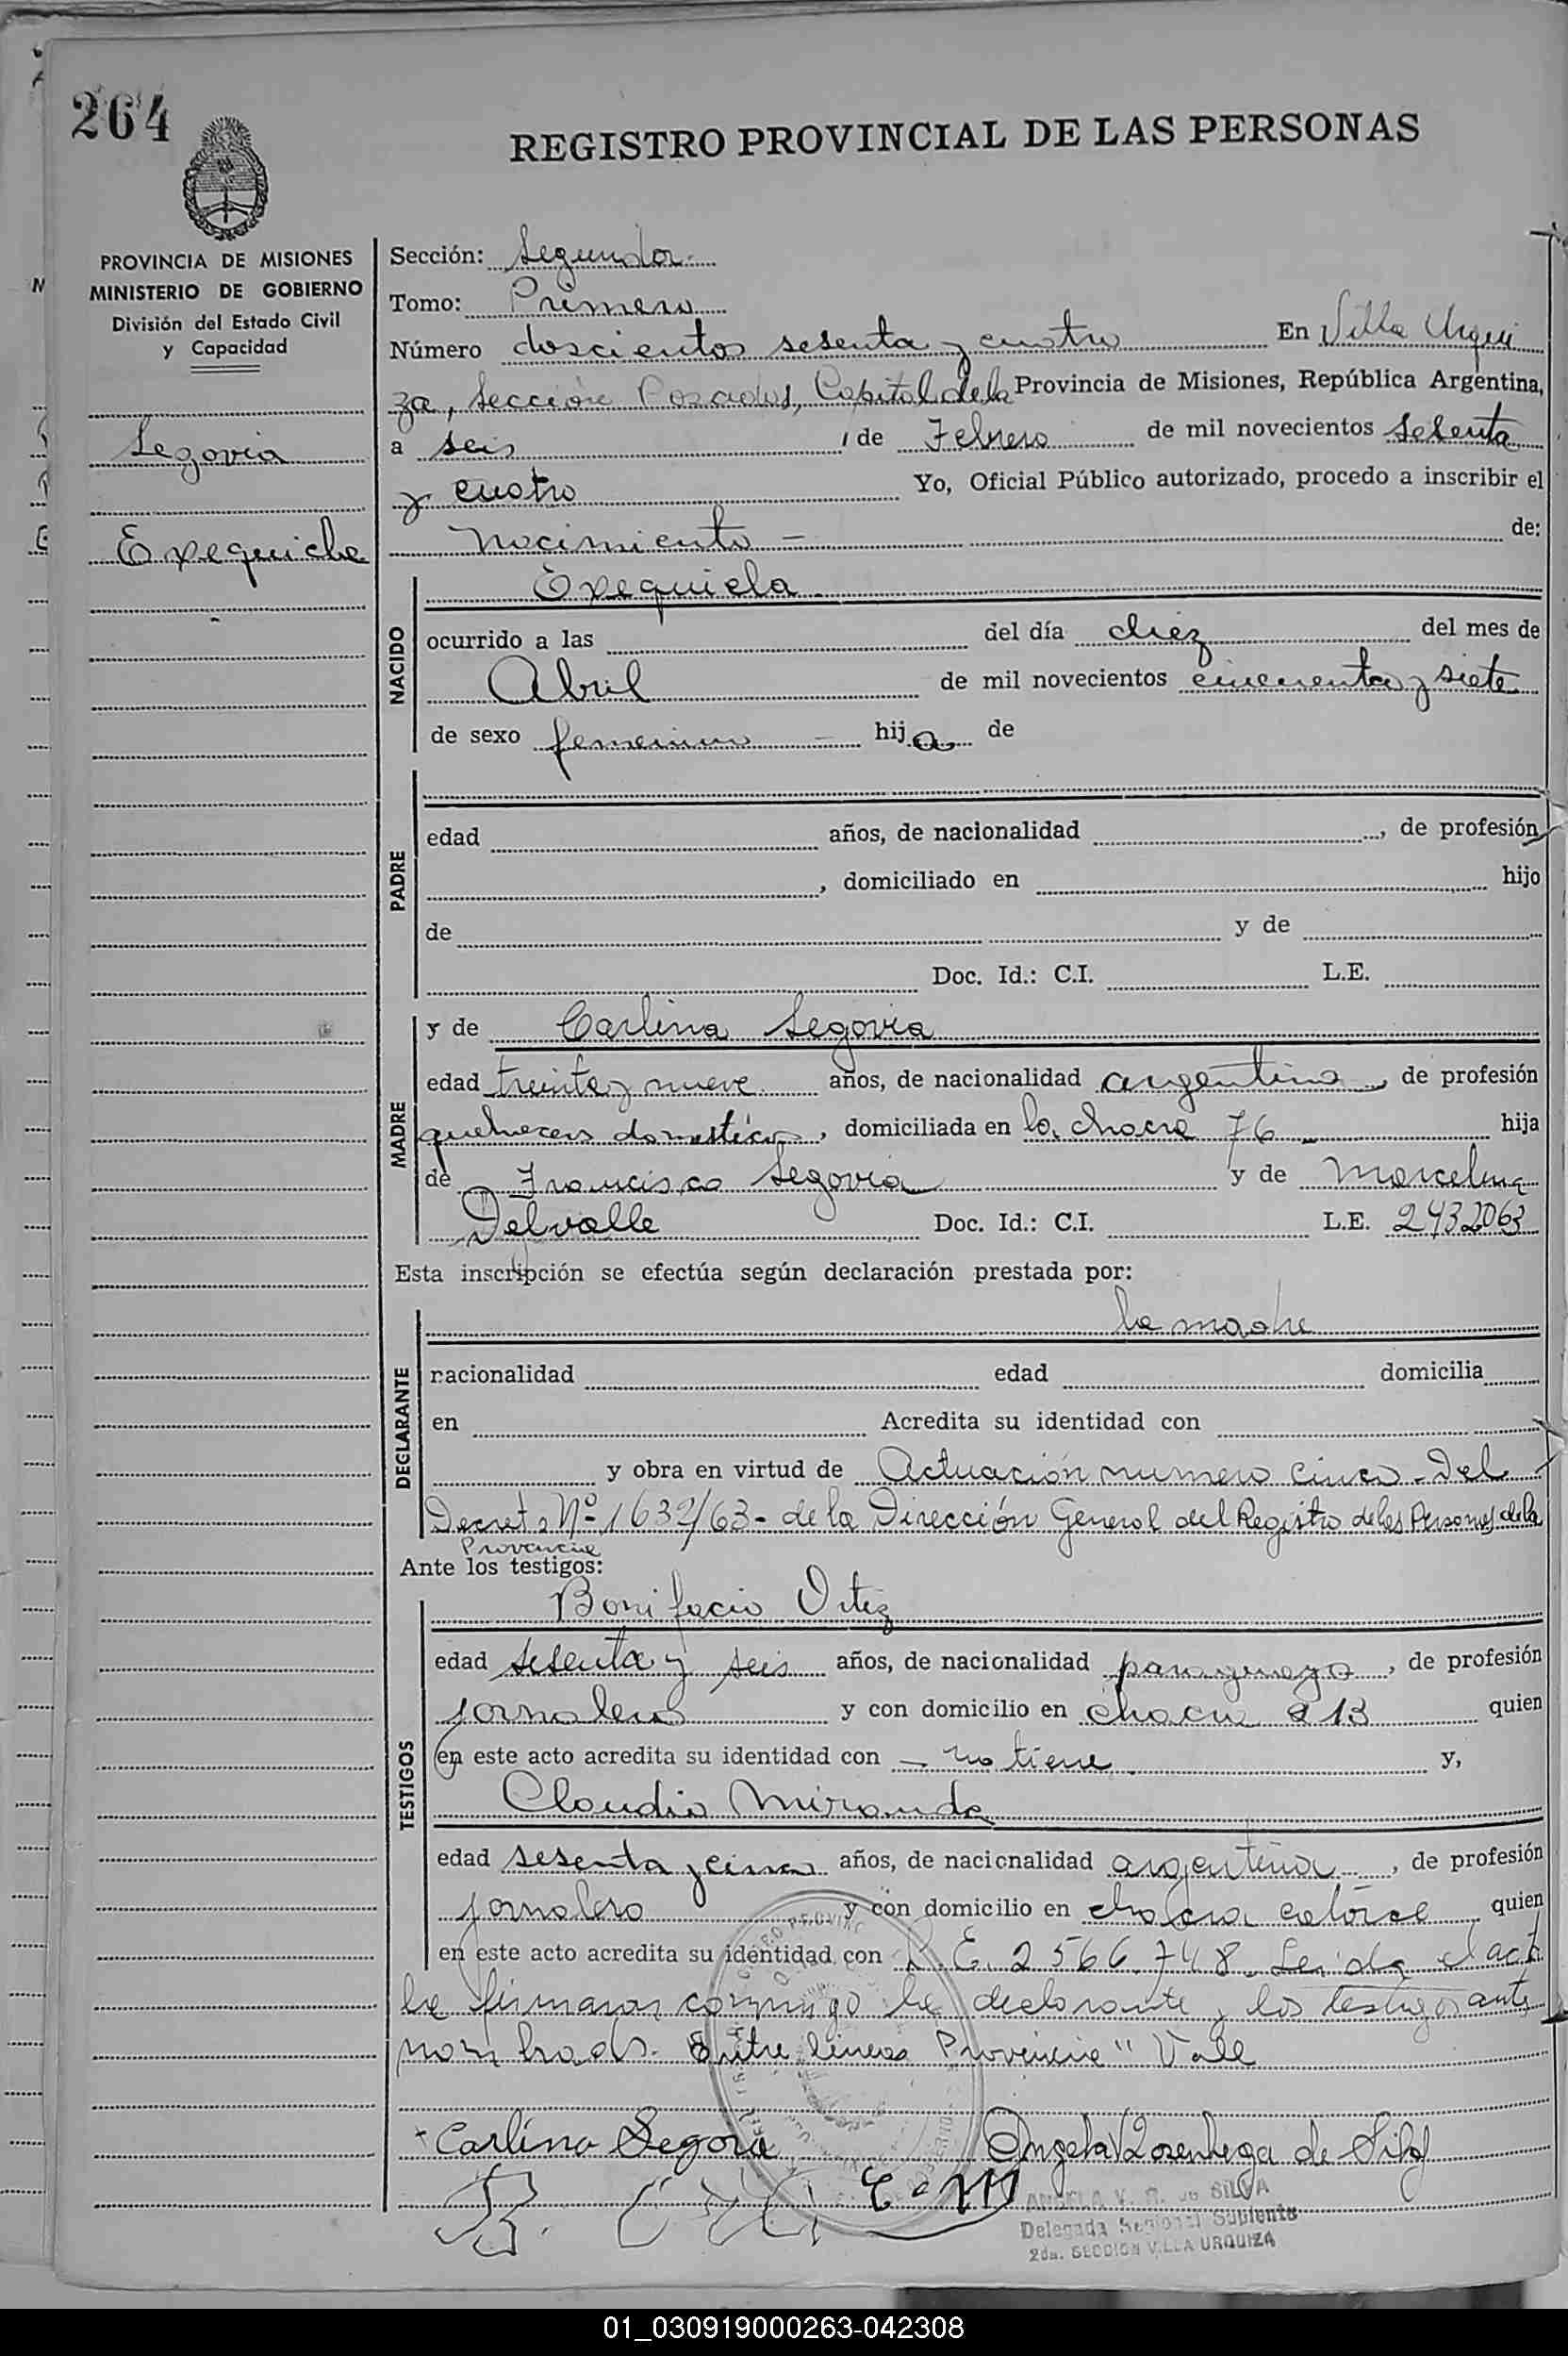 264
REGISTRO PROVINCIAL DE LAS PERSONAS
PROVINCIA DE MISIONES
MINISTERIO DE GOBIERNO
División del Estado Civil
y Capacidad
Segovia
Exequiela
Sección: Segunda
Tomo: Primero
Número doscientos sesenta y cuatro En Villa Urqui
za, Sección Posadas, Capital de la Provincia de Misiones, República Argentina,
a seis, de Febrero de mil novecientos setenta
y cuatro Yo, Oficial Público autorizado, procedo a inscribir el
Nacimiento - de:
NACIDO
Exequiela
ocurrido a las del día diez del mes de
Abril de mil novecientos cincuenta y siete
de sexo femenino - hija de
PADRE
edad años, de nacionalidad , de profesión
, domiciliado en hijo
de y de
Doc. Id.: C.I. L.E.
MADRE
y de Carlina Segovia
edad treinta y nueve años, de nacionalidad argentina, de profesión
quehaceres domésticos, domiciliada en la chacra 76 hija
de Francisco Segovia y de Marcelina
Delvalle Doc. Id.: C.I. L.E. 2432063
Esta inscripción se efectúa según declaración prestada por:
DECLARANTE
la madre
nacionalidad edad domicilia
en Acredita su identidad con
y obra en virtud de Actuación numero cinco - Del
Decreto Nº 1632/63 - de la Dirección General del Registro de las Personas de la
Provincia
Ante los testigos:
TESTIGOS
Bonifacio Ortiz
edad sesenta y seis años, de nacionalidad paraguayo, de profesión
jornalero y con domicilio en chacra 213 quien
en este acto acredita su identidad con - no tiene y,
Claudio Miranda
edad sesenta y cinco años, de nacionalidad argentina, de profesión
jornalero y con domicilio en chacra catorce quien
en este acto acredita su identidad con L.E. 2566.748. Leida el acta
la firman conmigo la declarante y los testigos ante
nombrados. Entre lineas Provincia" Vale
Carlina Segova
C M
ANGELA V. R. de SILVA
Delegada Regional Suplente
2da. SECCION VILLA URQUIZA
01_030919000263-042308